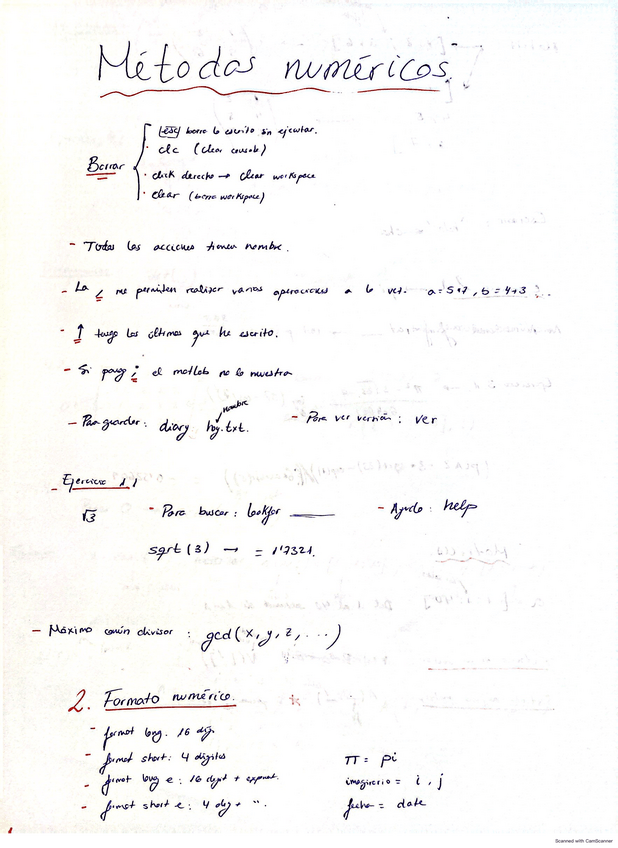 Métodos numéricos.
Borrar
esc borra lo escrito sin ejecutar.
· clc (clear console)
· click derecho → clear workspace
· clear (borra workspace)
- Todas las acciones tienen nombre.
- La , me permiten realizar varias operaciones a la vez. a=5+7, b=4+3
- ↑ tengo las últimas que he escrito.
- Si pongo ; el matlab no lo muestra
nombre
- Para guardar: diary hoy.txt. - Para ver versión: ver
- Ejercicio 1.1
√3 - Para buscar: lookfor ____ - Ayuda: help
sqrt(3) → = 1'7321.
- Máximo común divisor: gcd(x, y, z, ...)
2. Formato numérico.
- format long. 16 dig.
- format short: 4 dígitos π = pi
- format long e: 16 digit + exponent. imaginario = i, j
- format short e: 4 dig + ". fecha = date
Scanned with CamScanner